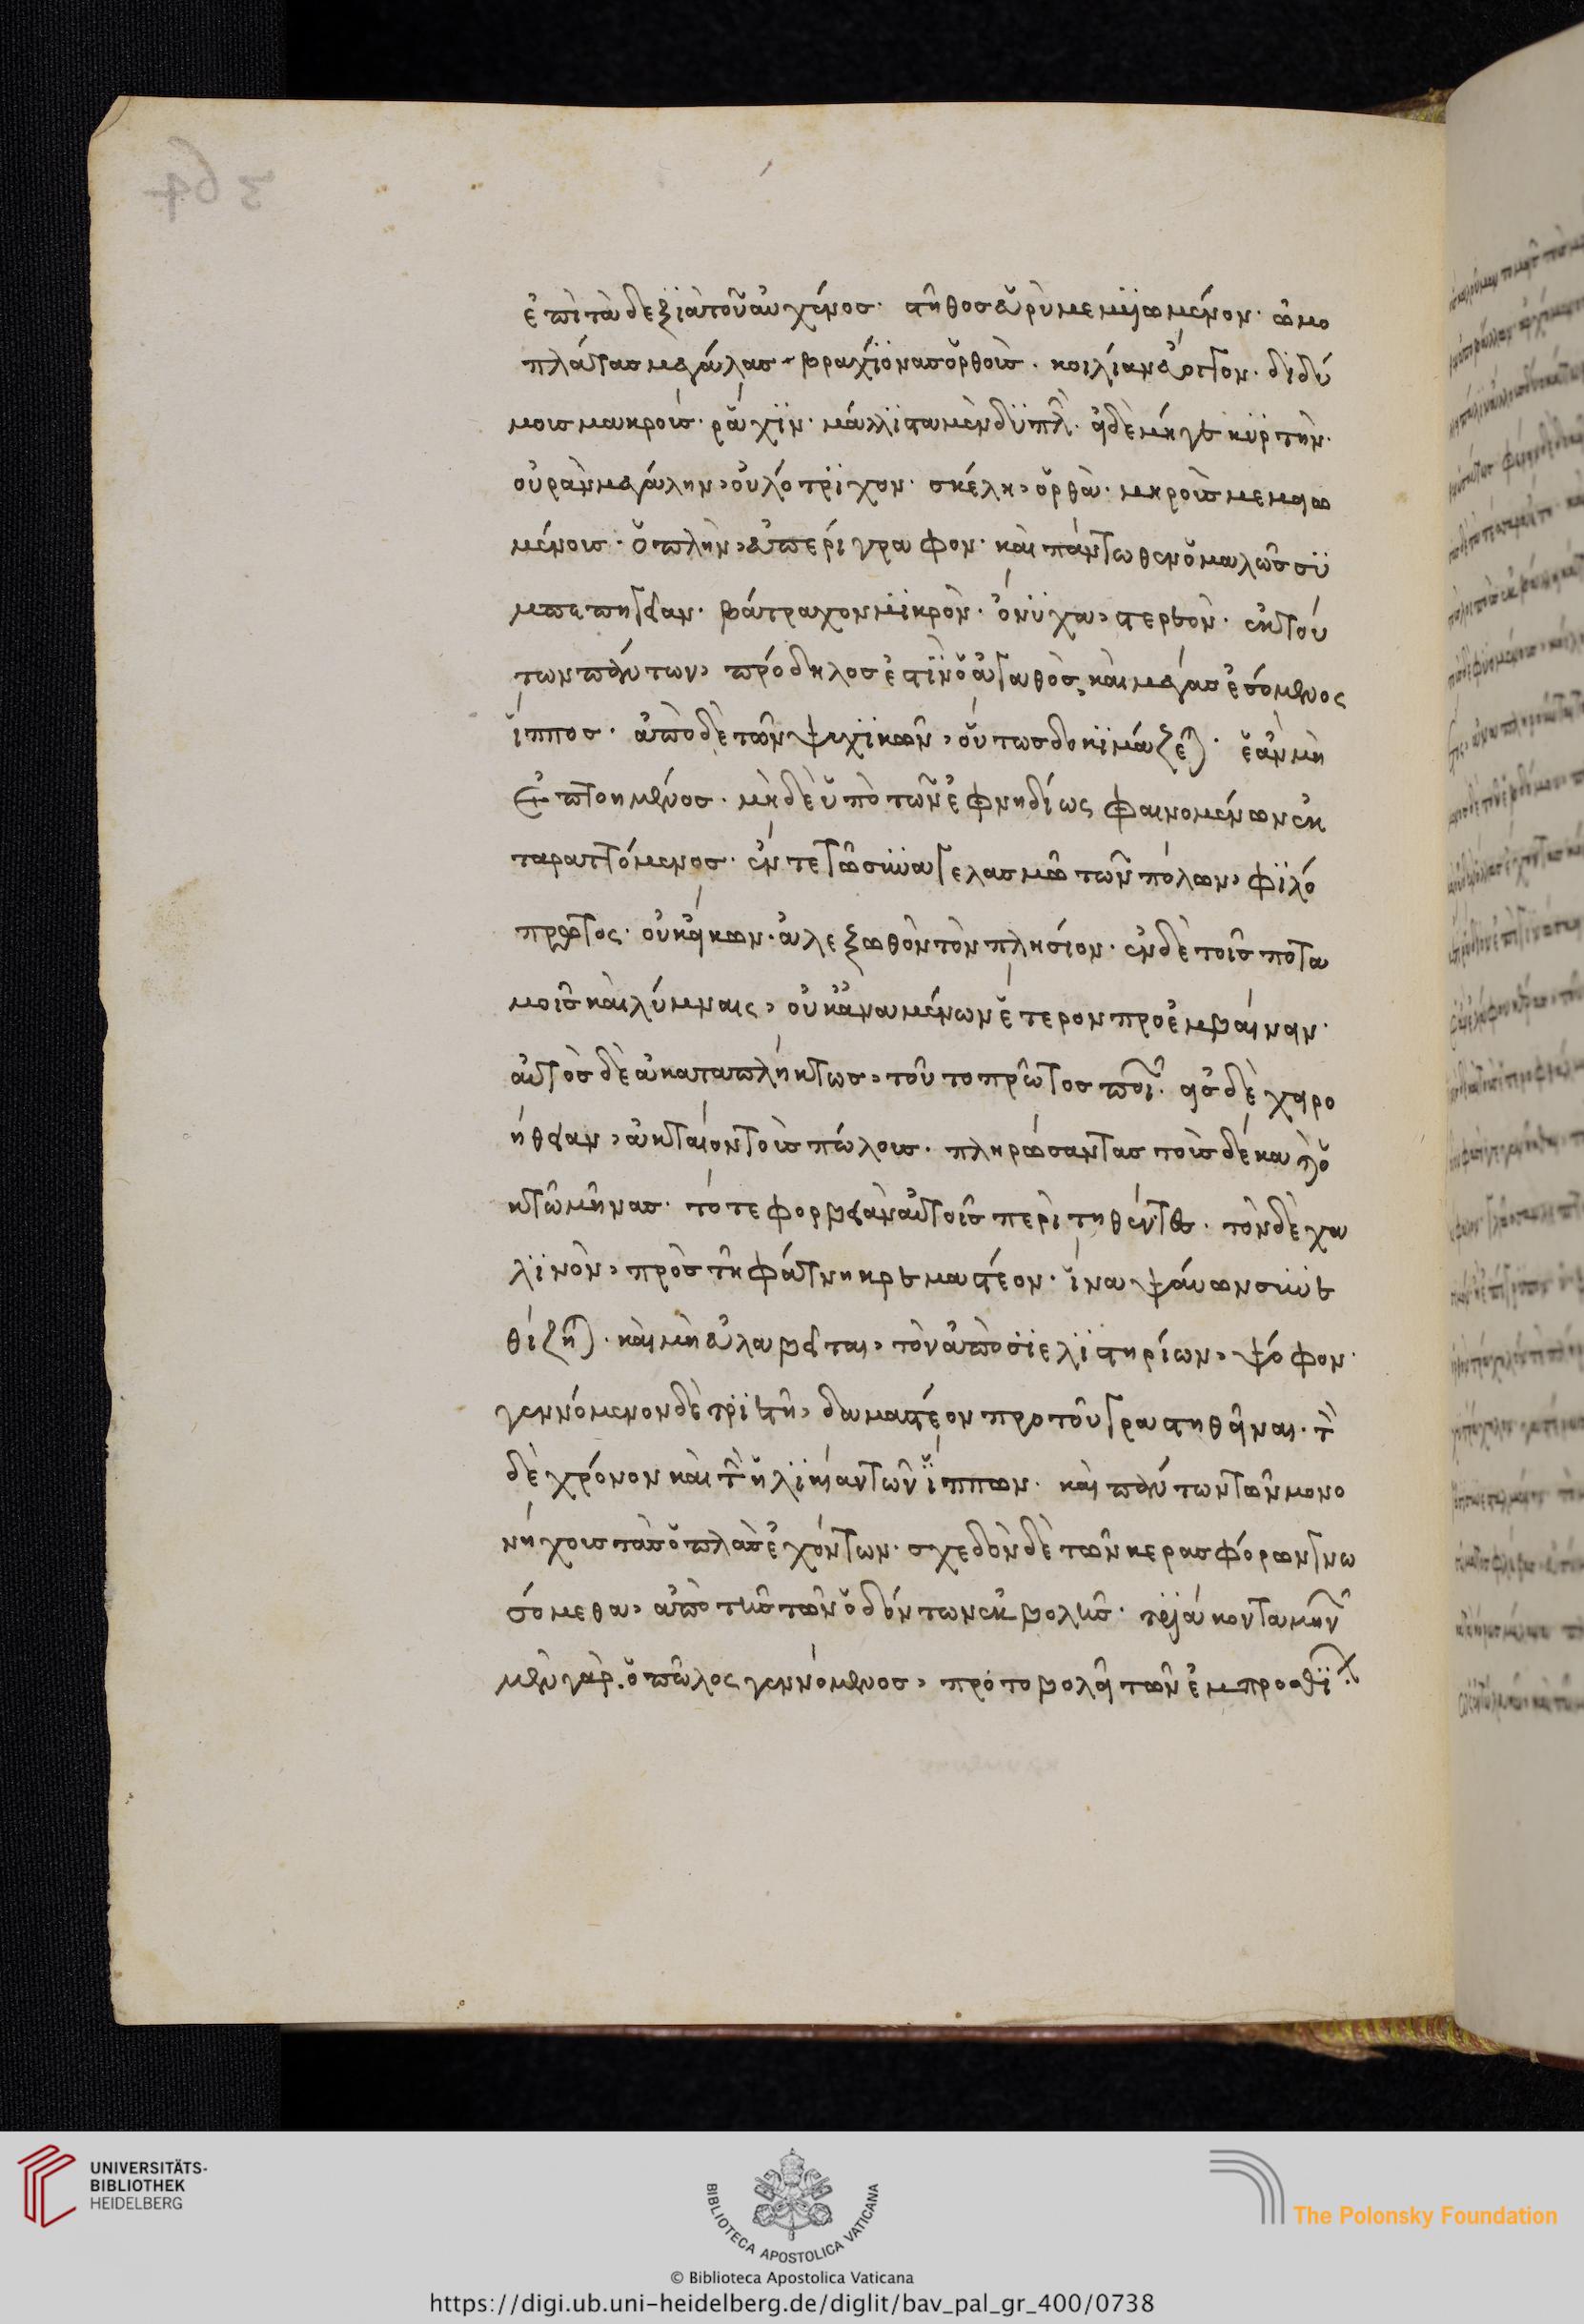 364
ἐπὶ τὰ δεξϊὰ τοῦ αὐχένος· στῆθος εὐρὺ μεμϋωμένον· ὠμο
πλάτας μεγάλας· βραχίονας ὀρθοῖς· κοιλίαν εὔογκον· διδύ
μοις μακροῖς· ῥάχϊν· μάλλϊστα μὲν δϋπλ· εἰ δὲ μή γε κϋρτὴν·
οὐρὰν μεγάλην, οὐλότρϊχον· σκέλη, ὀρθὰ· μηροῖς μεμϋω
μένοις· ὁπλὴν, εὐπερίγραφον· καὶ πάντωθεν ὁμαλῶς σϋ
μπεπηγεῖαν· βάτραχον μϊκρὸν· ὀνϋχα, στερεὸν· ἐκ τού
των πάντων, πρόδηλος ἐστϊν ὁ ἀγαθὸς, καὶ μέγας ἐσόμενος
ἵππος· ἀπὸ δὲ τῶν ψυχϊκῶν, οὕτως δοκϊμάζε· ἐὰν μὴ
ἐπτοημένος· μὴ δὲ ὑπὸ τῶν ἐφνηδίως φαινομένων ἐκ
ταραττόμενος· ἔν τε τῶ συναγελασμῶ τῶν πόλων, φϊλό
πρωτος· οὐκ εἴκων· ἀλεξωθὸν τὸν πλησίον· ἐν δὲ τοῖς ποτα
μοῖς καὶ λύμναις, οὐκ ἀναμένων ἕτερον προἐμβαίνειν·
αὐτὸς δὲ ἀκαταπλήκτως, τοῦτο πρῶτος ποι· εἰς δὲ χειρο
ήθειαν, ἀκταίον τοῖς πώλοις· πληρώσαντας τοῖς δέκα καὶ ὀ
κτῶ μῆνας· τότε φορβειὰν αὐτοῖς περὶτηθέντες· τὸν δὲ χα
λϊνὸν, πρὸς τῆ φάτνη κρεμαστέον· ἵνα ψάυων συνε
θίζη· καὶ μὴ εὐλαβεῖται, τὸν ἀπὸ σϊελϊστηρίων, ψόφον·
γεννόμενον δὲ τρϊετῆ, δαμαστέον προ τοῦ γραστηθῆναι· τὸν
δὲ χρόνον καὶ τὴν ἡλϊκίαν τῶν ἵππων· καὶ πάντων τῶν μονο
νήχοις τὰς ὁπλὰς ἐχόντων· σχεδὸν δὲ τῶν κερασφόρων γνω
σόμεθα, ἀπὸ τῆς τῶν ὀδόντων ἐκβολῆς· τρϊάκοντα μην
μὲν γὰρ· ὁ πῶλος γεννόμενος, πρότοβολεῖ τῶν ἐμπροσθϊ
UNIVERSITÄTS-
BIBLIOTHEK
HEIDELBERG
BIBLIOTECA APOSTOLICA VATICANA
The Polonsky Foundation
© Biblioteca Apostolica Vaticana
https://digi.ub.uni-heidelberg.de/diglit/bav_pal_gr_400/0738